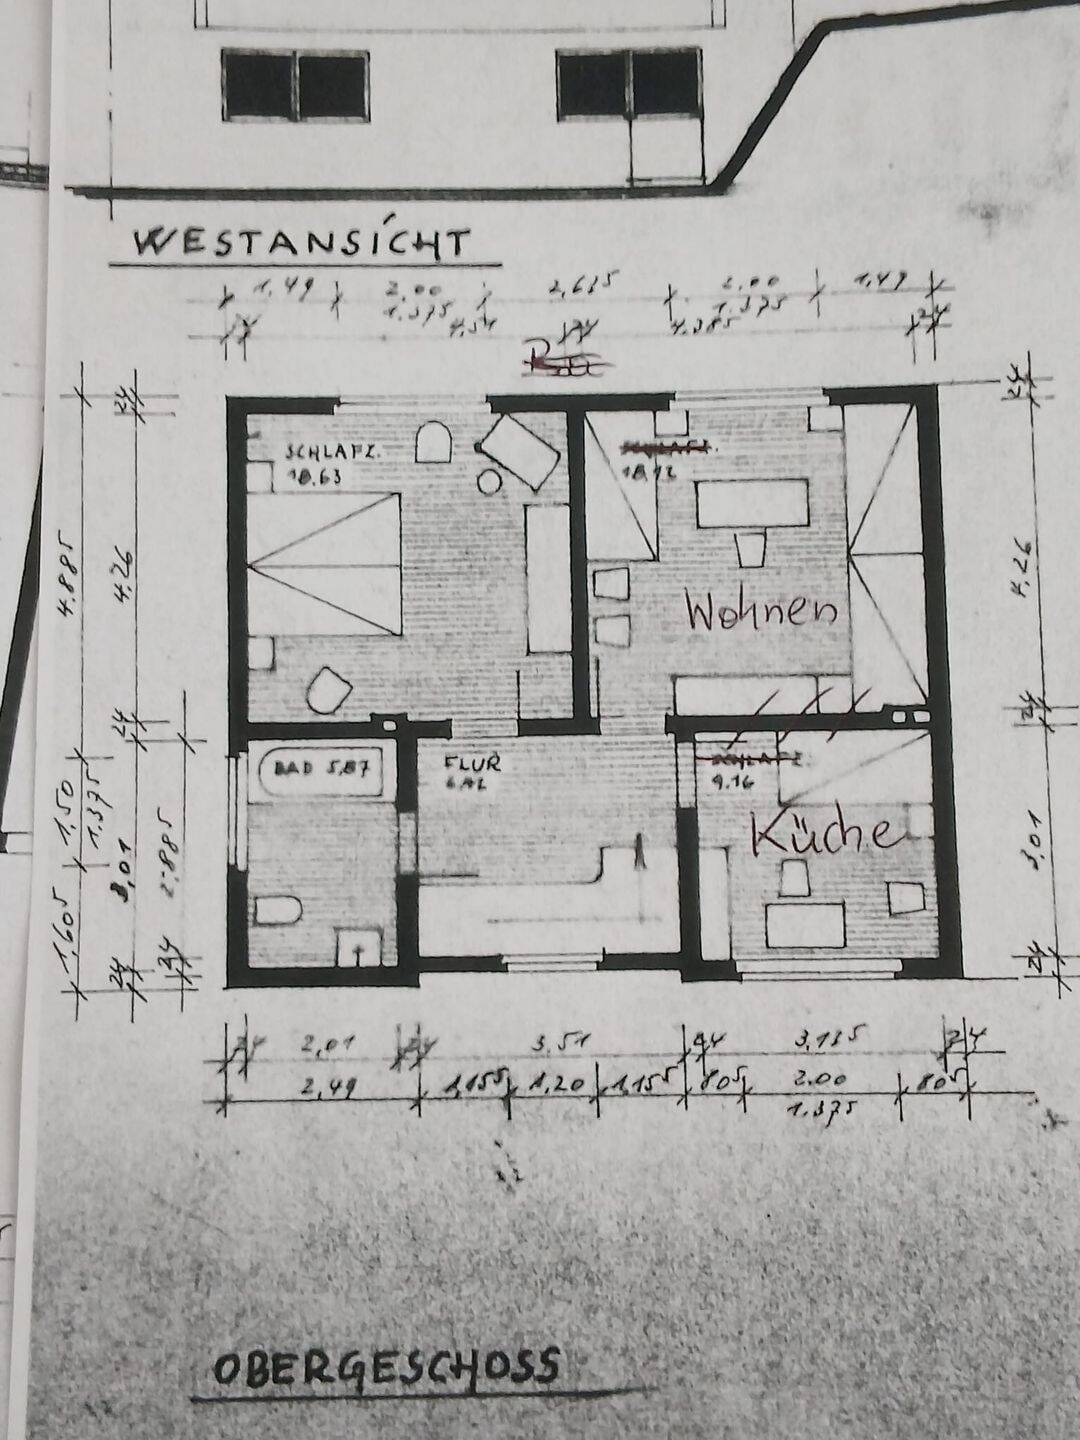 WESTANSICHT
1,49 2,00 2,635 2,00 1,49
1.375 1.375
24 4,51 24 4.385 24
24 24
SCHLAFZ. SCHLAFZ.
18,63 18,12
4.885 4,26 4,26
Wohnen
24 24
BAD 5,87 FLUR SCHLAFZ.
6,42 9.16
1,50
1.375
Küche
3,01 2.885 3,01
1,605
24 24 24
24 2,01 24 3.51 24 3,135 24
2,49 1,155 1,20 1,155 805 2.00 805
1.375
OBERGESCHOSS